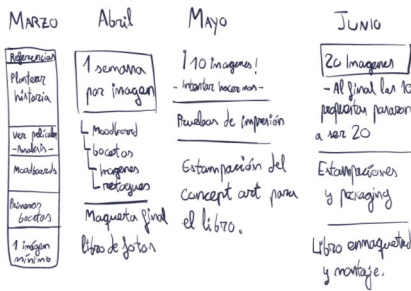 MARZO
Referencias
Plantear
historia
Ver películas
- Analisis -
Moodboards
Primeros
bocetos
1 imagen
mínimo
Abril
1 semana
por imagen
Moodboard
bocetos
Imagenes
retoques
Maqueta final
libro de fotos
MAYO
¡10 imagenes!
- Intentar hacer más -
Pruebas de impresión
Estampación del
concept art para
el libro.
JUNIO
20 Imagenes
- Al final las 10
propuestas pasaron
a ser 20
Estampaciones
y packaging
Libro enmaquetado
y montaje.